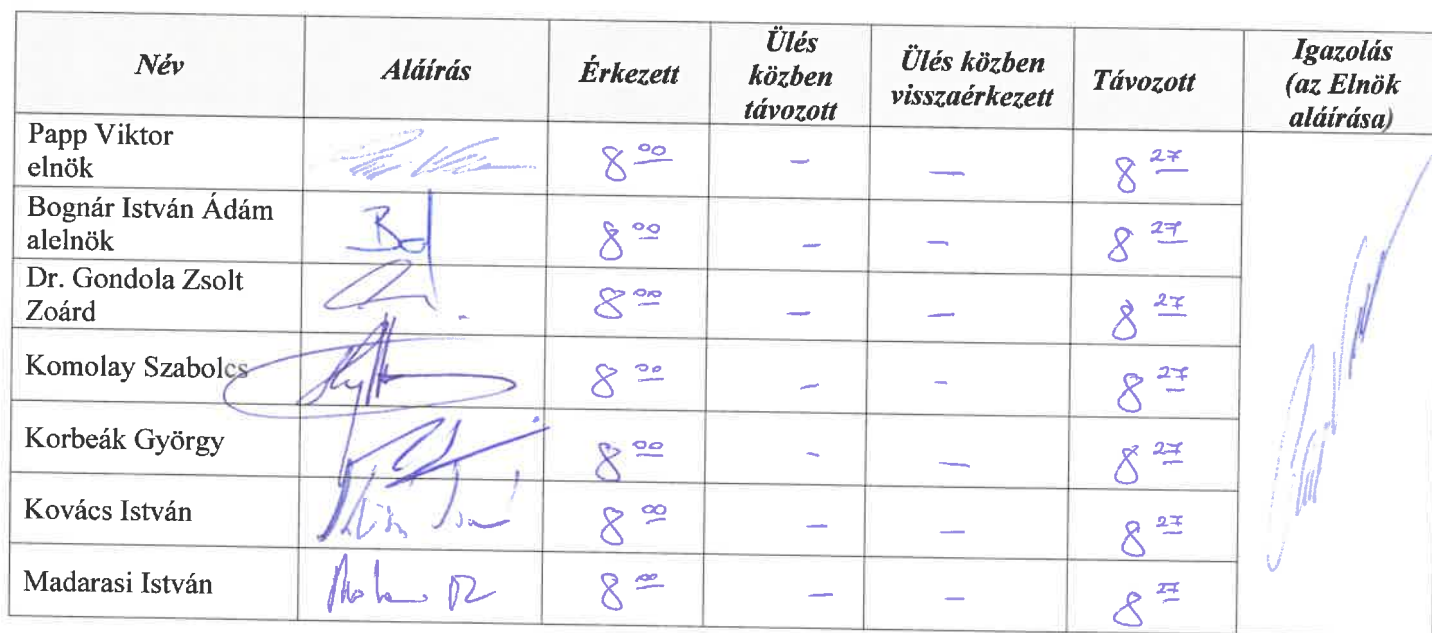 Név Aláírás Érkezett Ülés közben távozott Ülés közben visszaérkezett Távozott Igazolás (az Elnök aláírása)
Papp Viktor elnök 8 00 – – 8 27
Bognár István Ádám alelnök 8 00 – – 8 27
Dr. Gondola Zsolt Zoárd 8 00 – – 8 27
Komolay Szabolcs 8 00 – – 8 27
Korbeák György 8 00 – – 8 27
Kovács István 8 00 – – 8 27
Madarasi István 8 00 – – 8 27